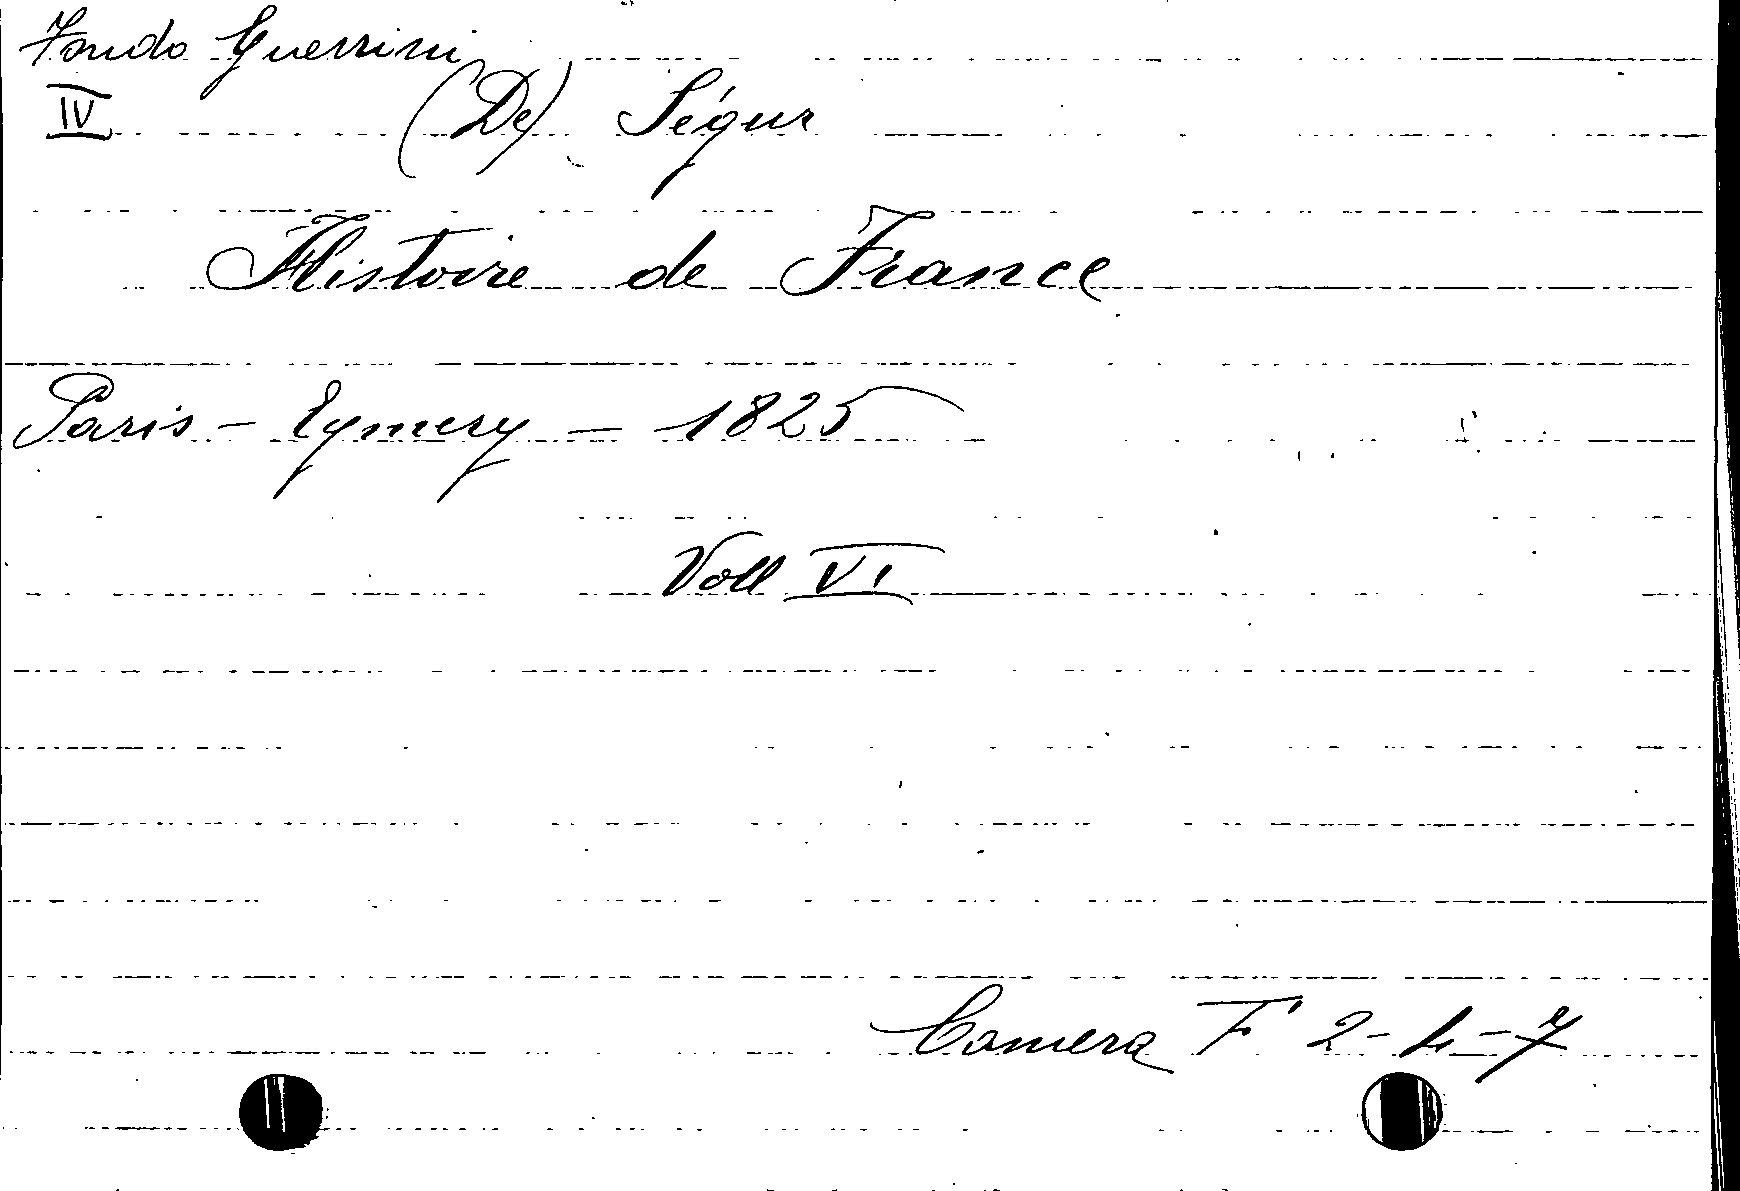 Fondo Guerrini
IV (De) Ségur
Histoire de France
Paris - Eymery - 1825
Voll VI
Camera F' 2-4-7